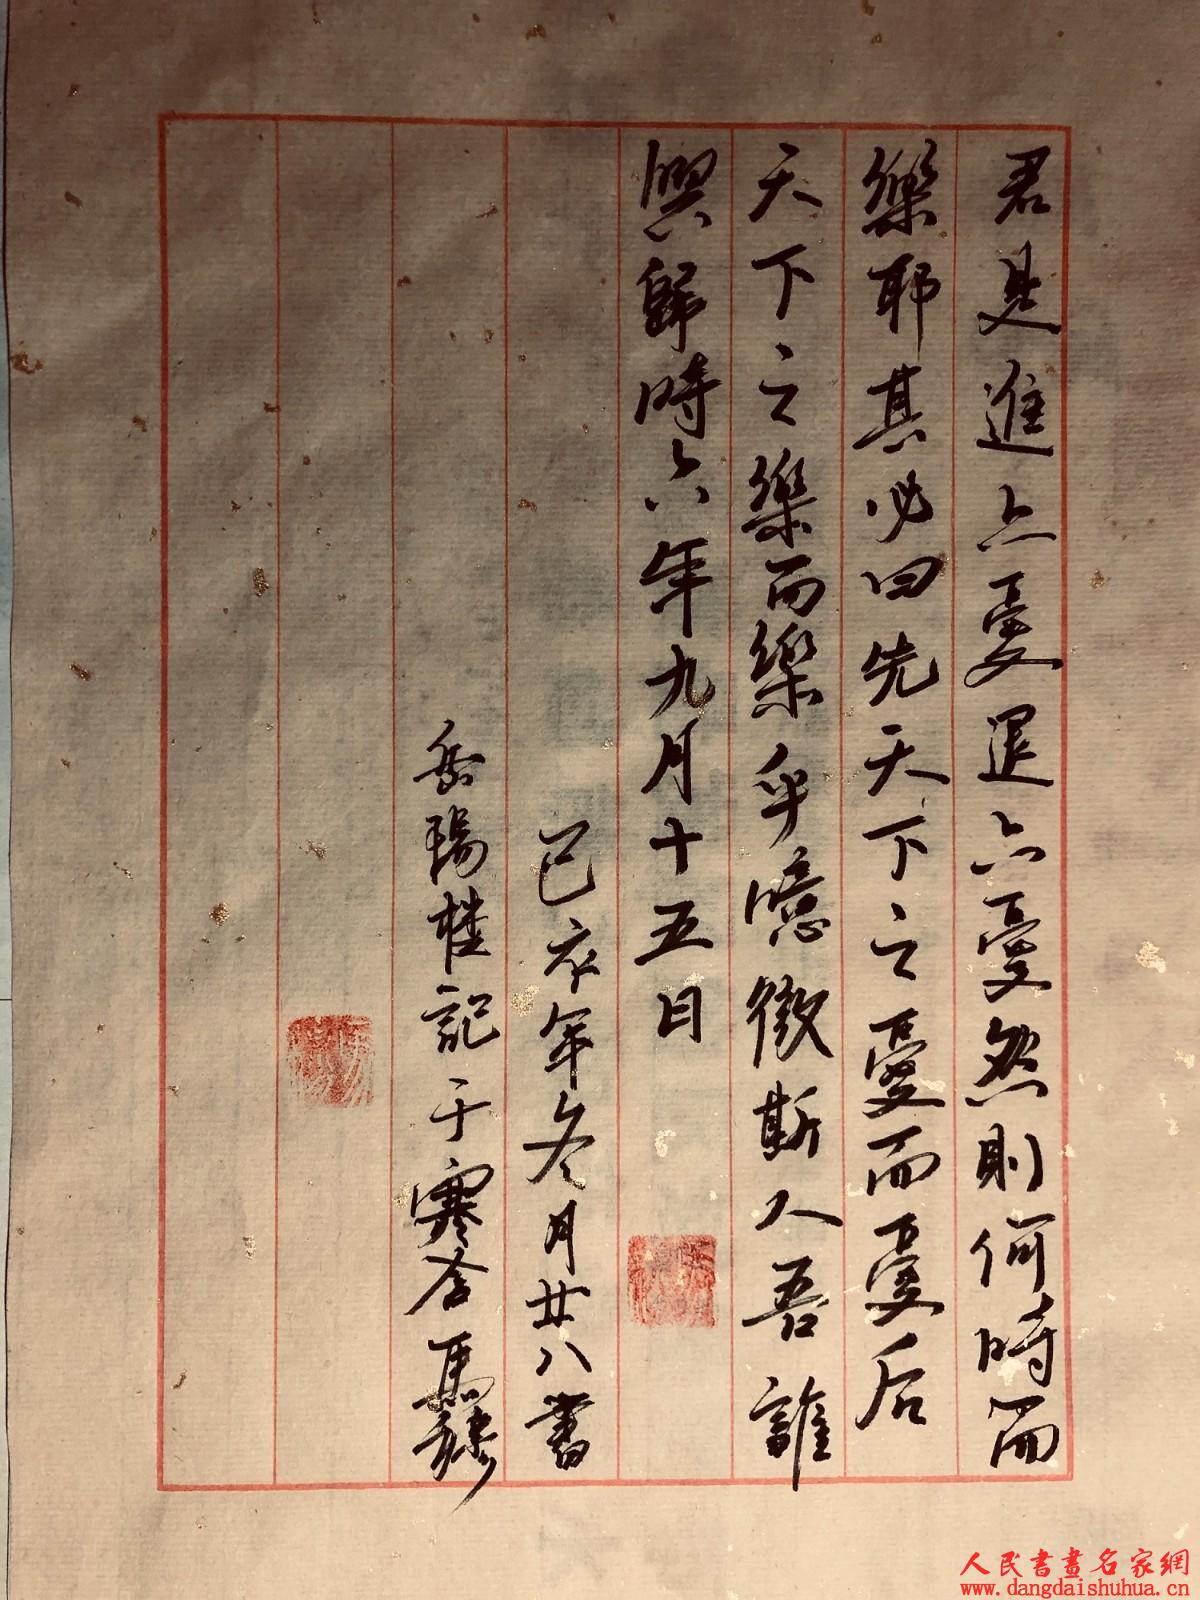 君是進亦憂退亦憂然則何時而
樂耶其必曰先天下之憂而憂后
天下之樂而樂乎噫微斯人吾誰
與歸時六年九月十五日
己亥年冬月廿八書
岳陽樓記于寒舍馬
人民書畫名家網
www.dangdaishuhua.cn